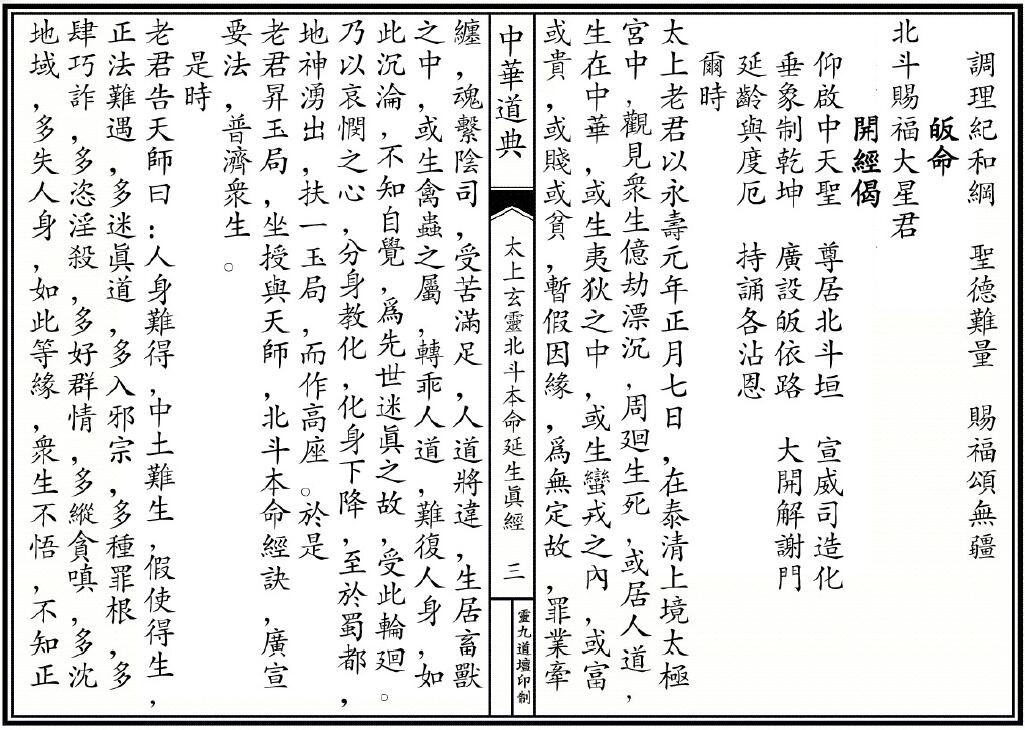 調理紀和綱　聖德難量　賜福頌無疆
皈命
北斗賜福大星君
開經偈
仰啟中天聖　尊居北斗垣　宣威司造化
垂象制乾坤　廣設皈依路　大開解謝門
延齡與度厄　持誦各沾恩
爾時
太上老君以永壽元年正月七日,在泰清上境太極
宮中,觀見衆生億劫漂沉,周廻生死,或居人道,
生在中華,或生夷狄之中,或生蠻戎之內,或富
或貴,或賤或貧,暫假因緣,爲無定故,罪業牽
中華道典
太上玄靈北斗本命延生眞經
三
靈九道壇印制
纏,魂繫陰司,受苦滿足,人道將違,生居畜獸
之中,或生禽蟲之屬,轉乖人道,難復人身,如
此沉淪,不知自覺,爲先世迷眞之故,受此輪廻。
乃以哀憫之心,分身教化,化身下降,至於蜀都,
地神湧出,扶一玉局,而作高座。於是
老君昇玉局,坐授與天師,北斗本命經訣,廣宣
要法,普濟衆生。
是時
老君告天師曰:人身難得,中土難生,假使得生,
正法難遇,多迷眞道,多入邪宗,多種罪根,多
肆巧詐,多恣淫殺,多好群情,多縱貪嗔,多沈
地域,多失人身,如此等緣,衆生不悟,不知正